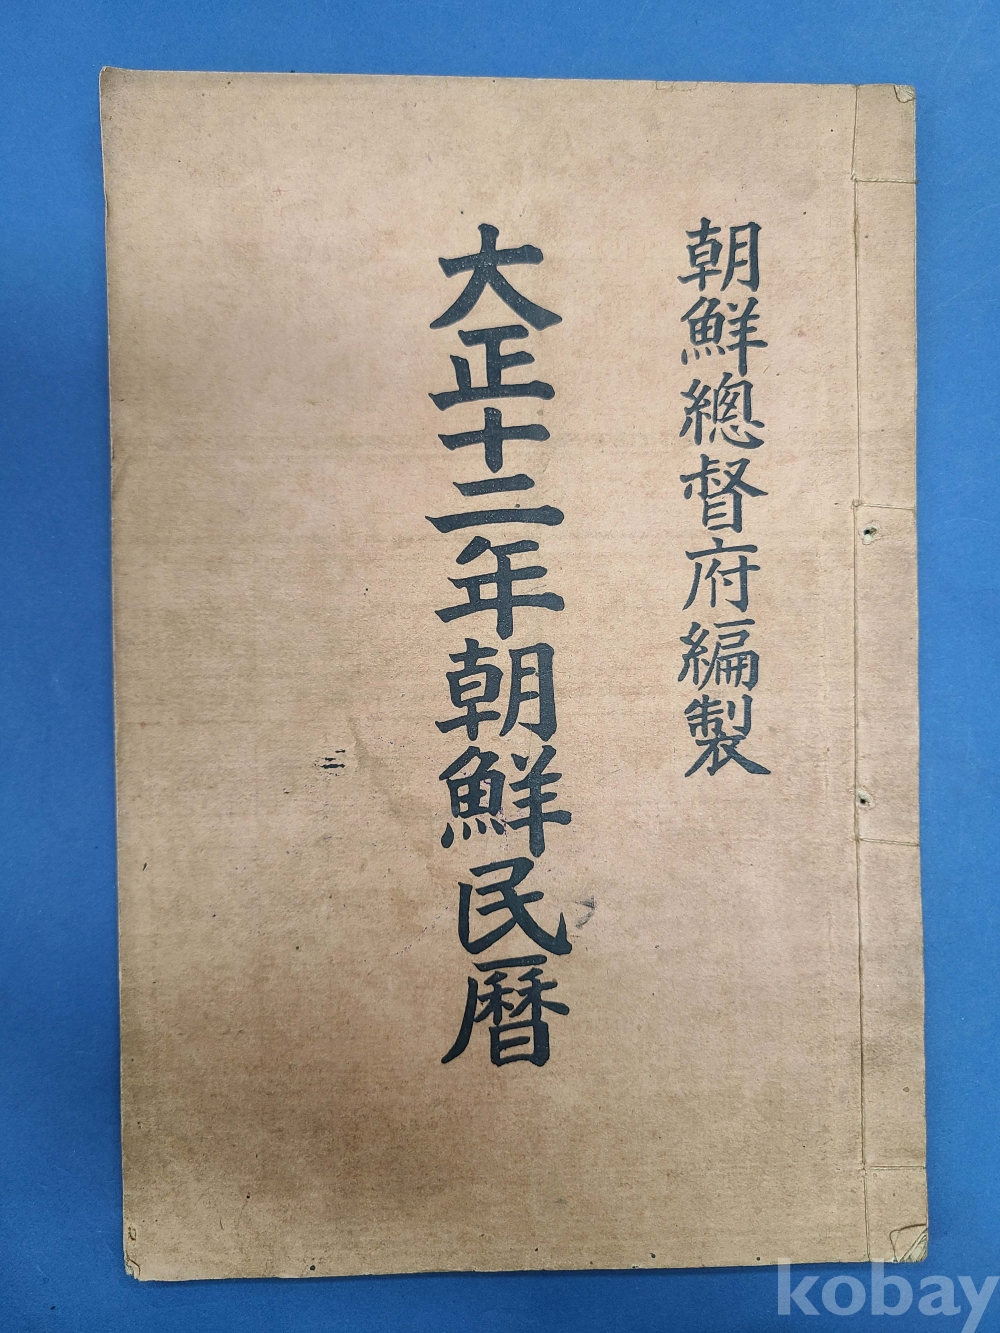 朝鮮總督府編製
大正十二年朝鮮民曆
kobay